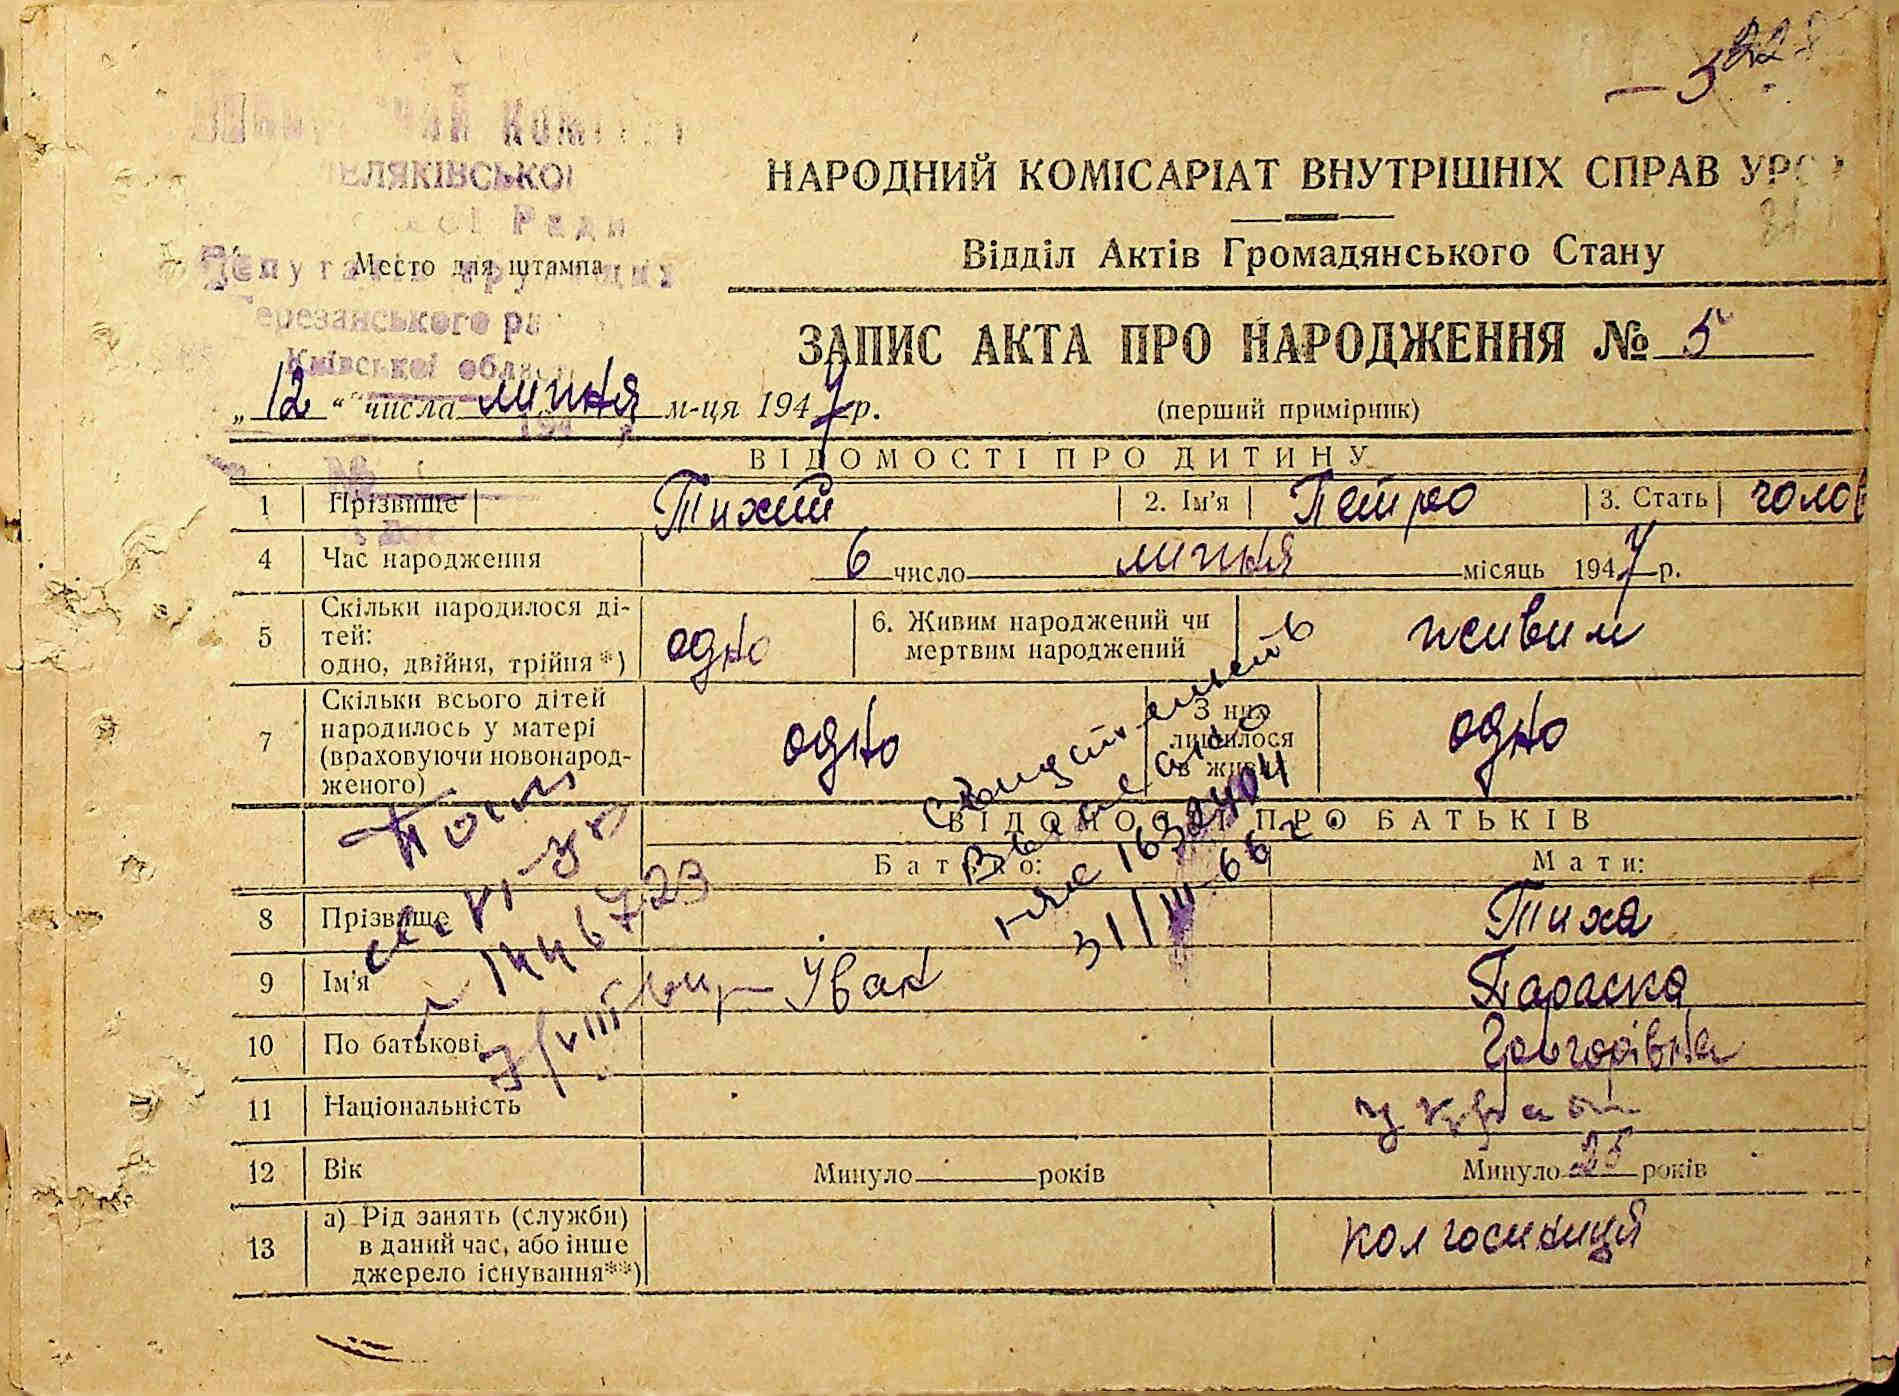 5
Комі
ЕЛЯКІВСЬКОЇ
Ради
Место для штампа
Київської
НАРОДНИЙ КОМІСАРІАТ ВНУТРІШНІХ СПРАВ УРС
Відділ Актів Громадянського Стану
ЗАПИС АКТА ПРО НАРОДЖЕННЯ № 5
„12“ числа липня м-ця 1947 р.
(перший примірник)
ВІДОМОСТІ ПРО ДИТИНУ
1 Прізвище Тихий 2. Ім'я Петро 3. Стать чолов
4 Час народження 6 число липня місяць 1947 р.
5 Скільки народилося ді-
тей:
одно, двійня, трійня *) одно
6. Живим народжений чи
мертвим народжений живим
7 Скільки всього дітей
народилось у матері
(враховуючи новонарод-
женого) одно
З них
лишилося
в живих одно
ВІДОМОСТІ ПРО БАТЬКІВ
Батько: Мати:
8 Прізвище Тиха
9 Ім'я Іван Параска
10 По батькові Григорівна
11 Національність
12 Вік Минуло років Минуло 25 років
13 а) Рід занять (служби)
в даний час, або інше
джерело існування**) колгоспниця
1446723
1632404
31/III.66 г.